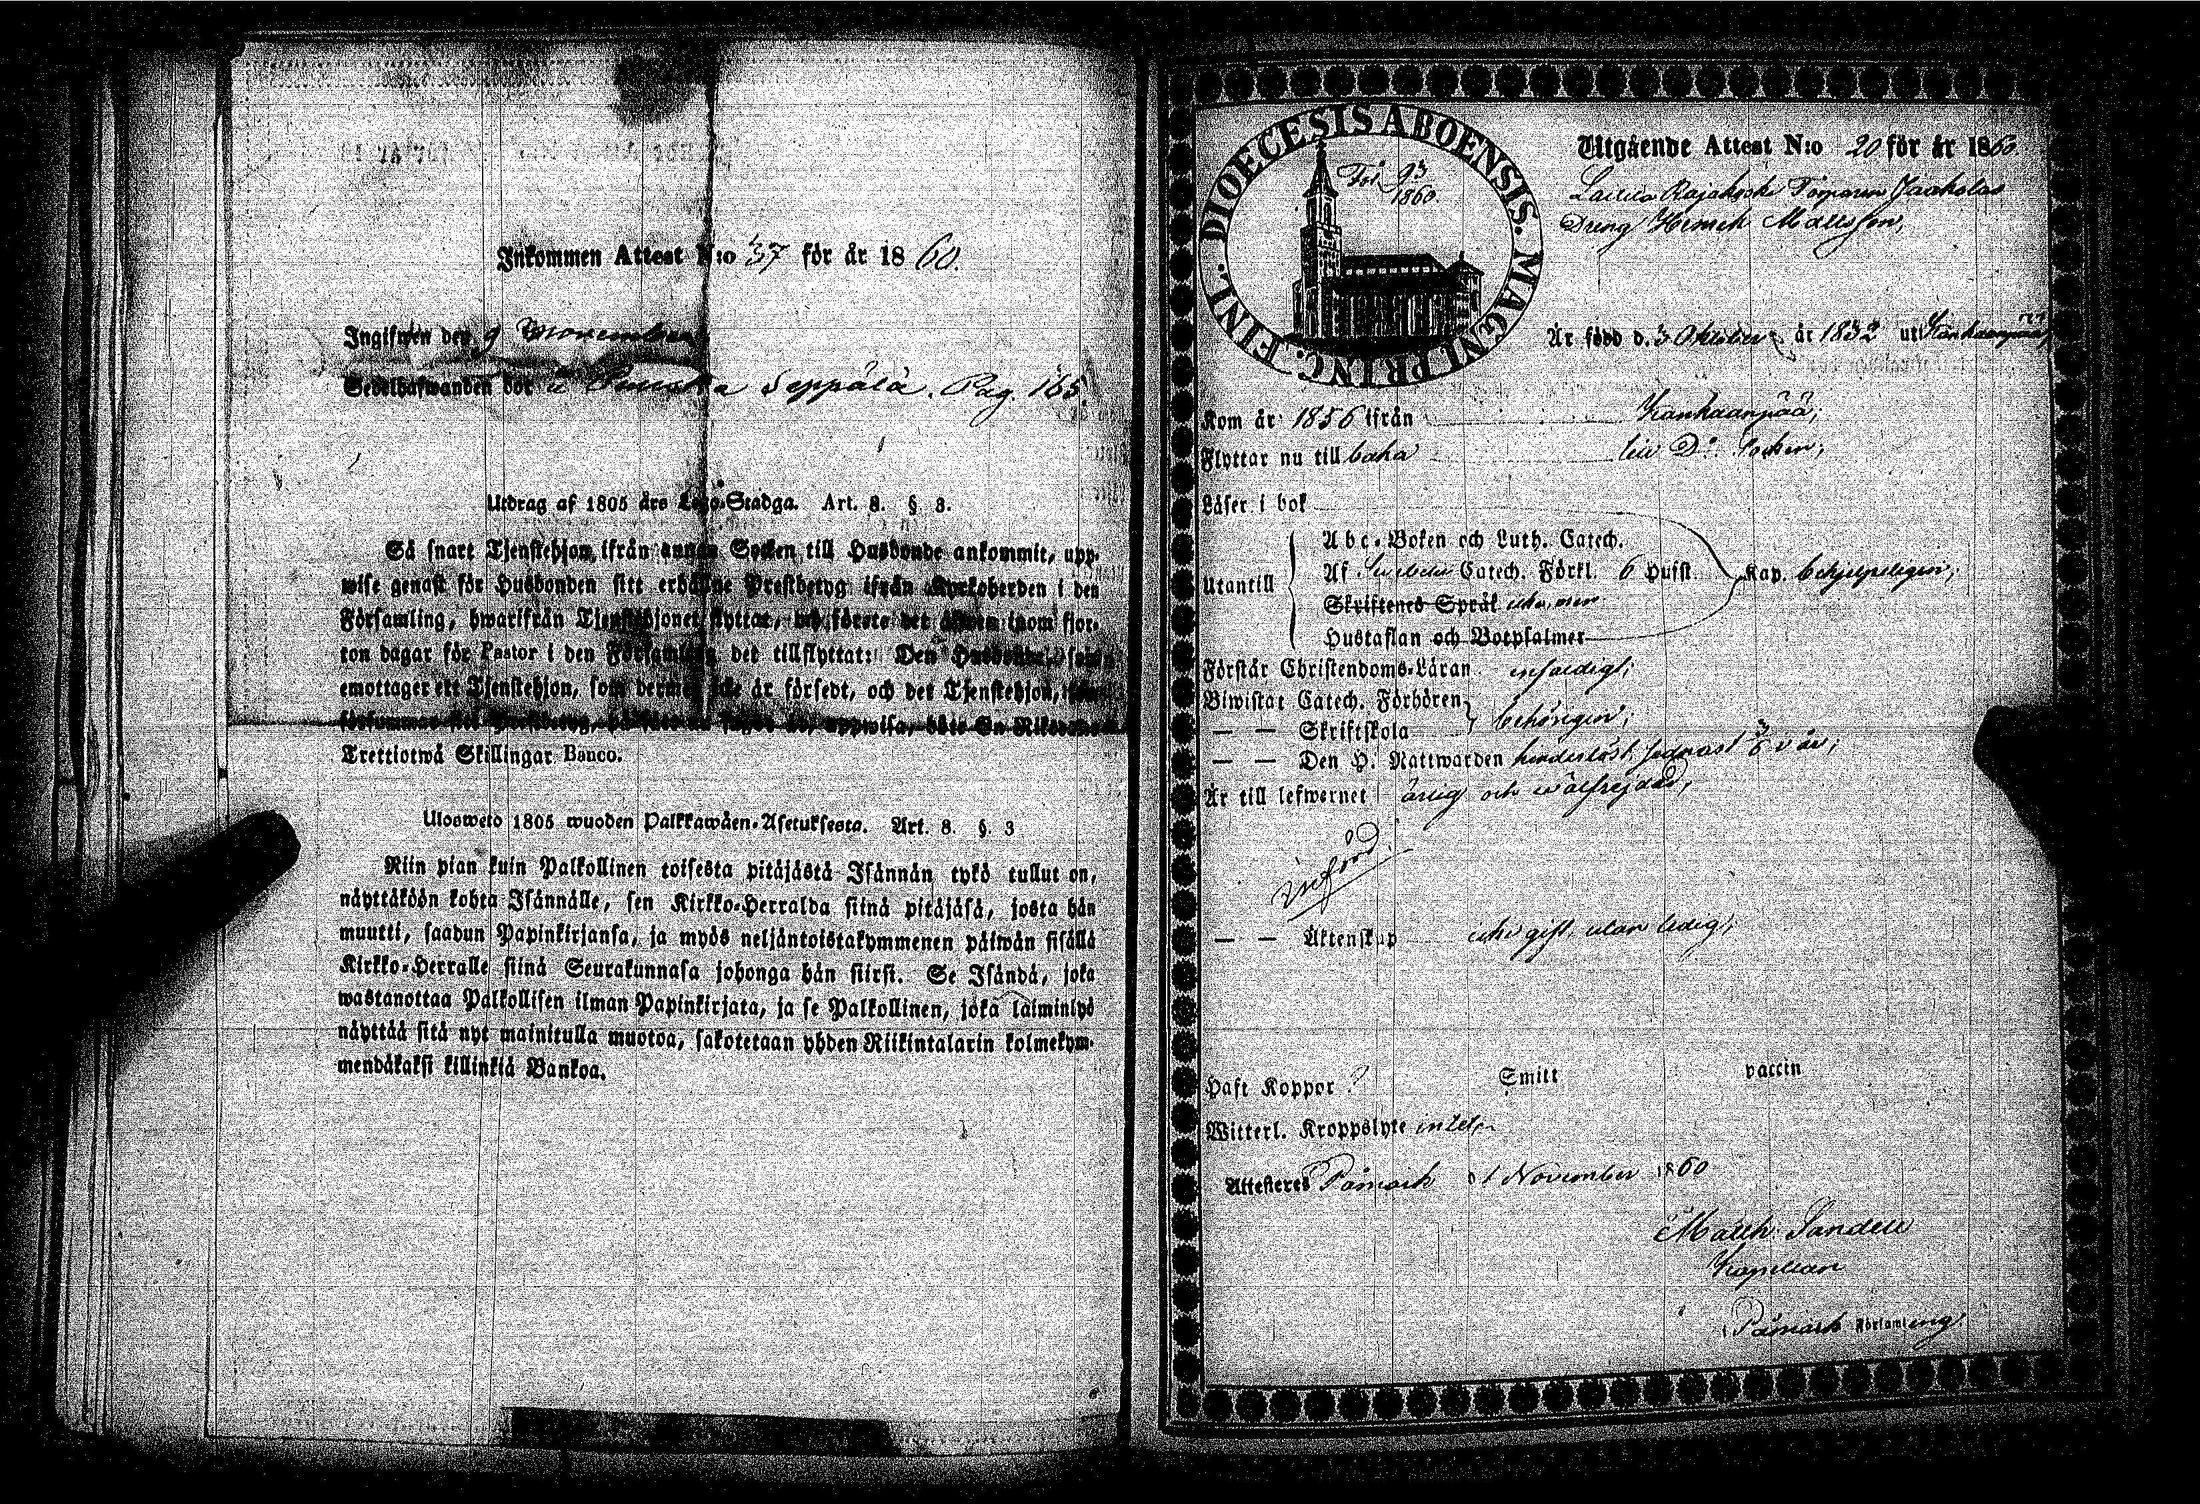 Inkommen Attest N:o 37 för år 1860.
Ingifwen den 9 November
Sedelhafwanden bor i Seppälä. Pag. 165.
Utdrag af 1805 års Lego-Stadga. Art. 8. § 3.
Så snart Tjenstehjon ifrån annan Socken till Husbonde ankommit, upp-
wise genast för Husbonden sitt erhållne Prestbetyg ifrån Kyrkoherden i den
Församling, hwarifrån Tjenstehjonet flyttat, och förete det äfwen inom fjor-
ton dagar för Pastor i den Församling det tillflyttat: Den Husbonde, som
emottager ett Tjenstehjon, som dermed icke är försedt, och det Tjenstehjon,
försummar sitt Prestbetyg, på sätt nu sagdt är, uppwisa, böte En Riksdaler
Trettiotwå Skillingar Banco.
Ulosweto 1805 wuoden Palkkawäen-Asetuksesta. Art. 8. §. 3
Niin pian kuin Palkollinen toisesta pitäjästä Isännän tykö tullut on,
näyttäköön kohta Isännälle, sen Kirkko-Herralda siinä pitäjäsä, josta hän
muutti, saadun Papinkirjansa, ja myös neljäntoistakymmenen päiwän sisällä
Kirkko-Herralle siinä Seurakunnasa johonga hän siirsi. Se Isändä, joka
wastanottaa Palkollisen ilman Papinkirjata, ja se Palkollinen, joka laiminlyö
näyttää sitä nyt mainitulla muotoa, sakotetaan yhden Riikintalarin kolmekym-
mendäkaksi killinkiä Bankoa.
DIOECESIS ABOENSIS. MAGNI PRINC. FINL.
93
1860.
Utgående Attest N:o 20 för år 1860.
Jaakolas
Dreng Henrik Mattsson,
Är född d. 3 Oktober år 1832 uti Kankaanpää,
Kom år 1856 ifrån Kankaanpää;
Flyttar nu till baka till D:o Socken;
Läser i bok
Utantill
Abc-Boken och Luth. Catech.
Af Svebelii Catech. Förkl. 6 Hufst. Kap. behjelpeligen;
Skriftenes Språk icke, men
Hustaflan och Botpsalmer
Förstår Christendoms-Läran enfaldigt;
Biwistat Catech. Förhören
— — Skriftskola behörigen;
— — Den H. Nattwarden hinderlöst, sednast 3/6 v år;
Är till lefwernet ärlig och wälfrejdad,
— — Äktenskap icke gift, utan ledig;
Haft Koppor ? Smitt vaccin
Witterl. Kroppslyte intet,
Attesteres Påmark d 1 November 1860
Matth. Sandell
Kapellan
i Påmark Församling.